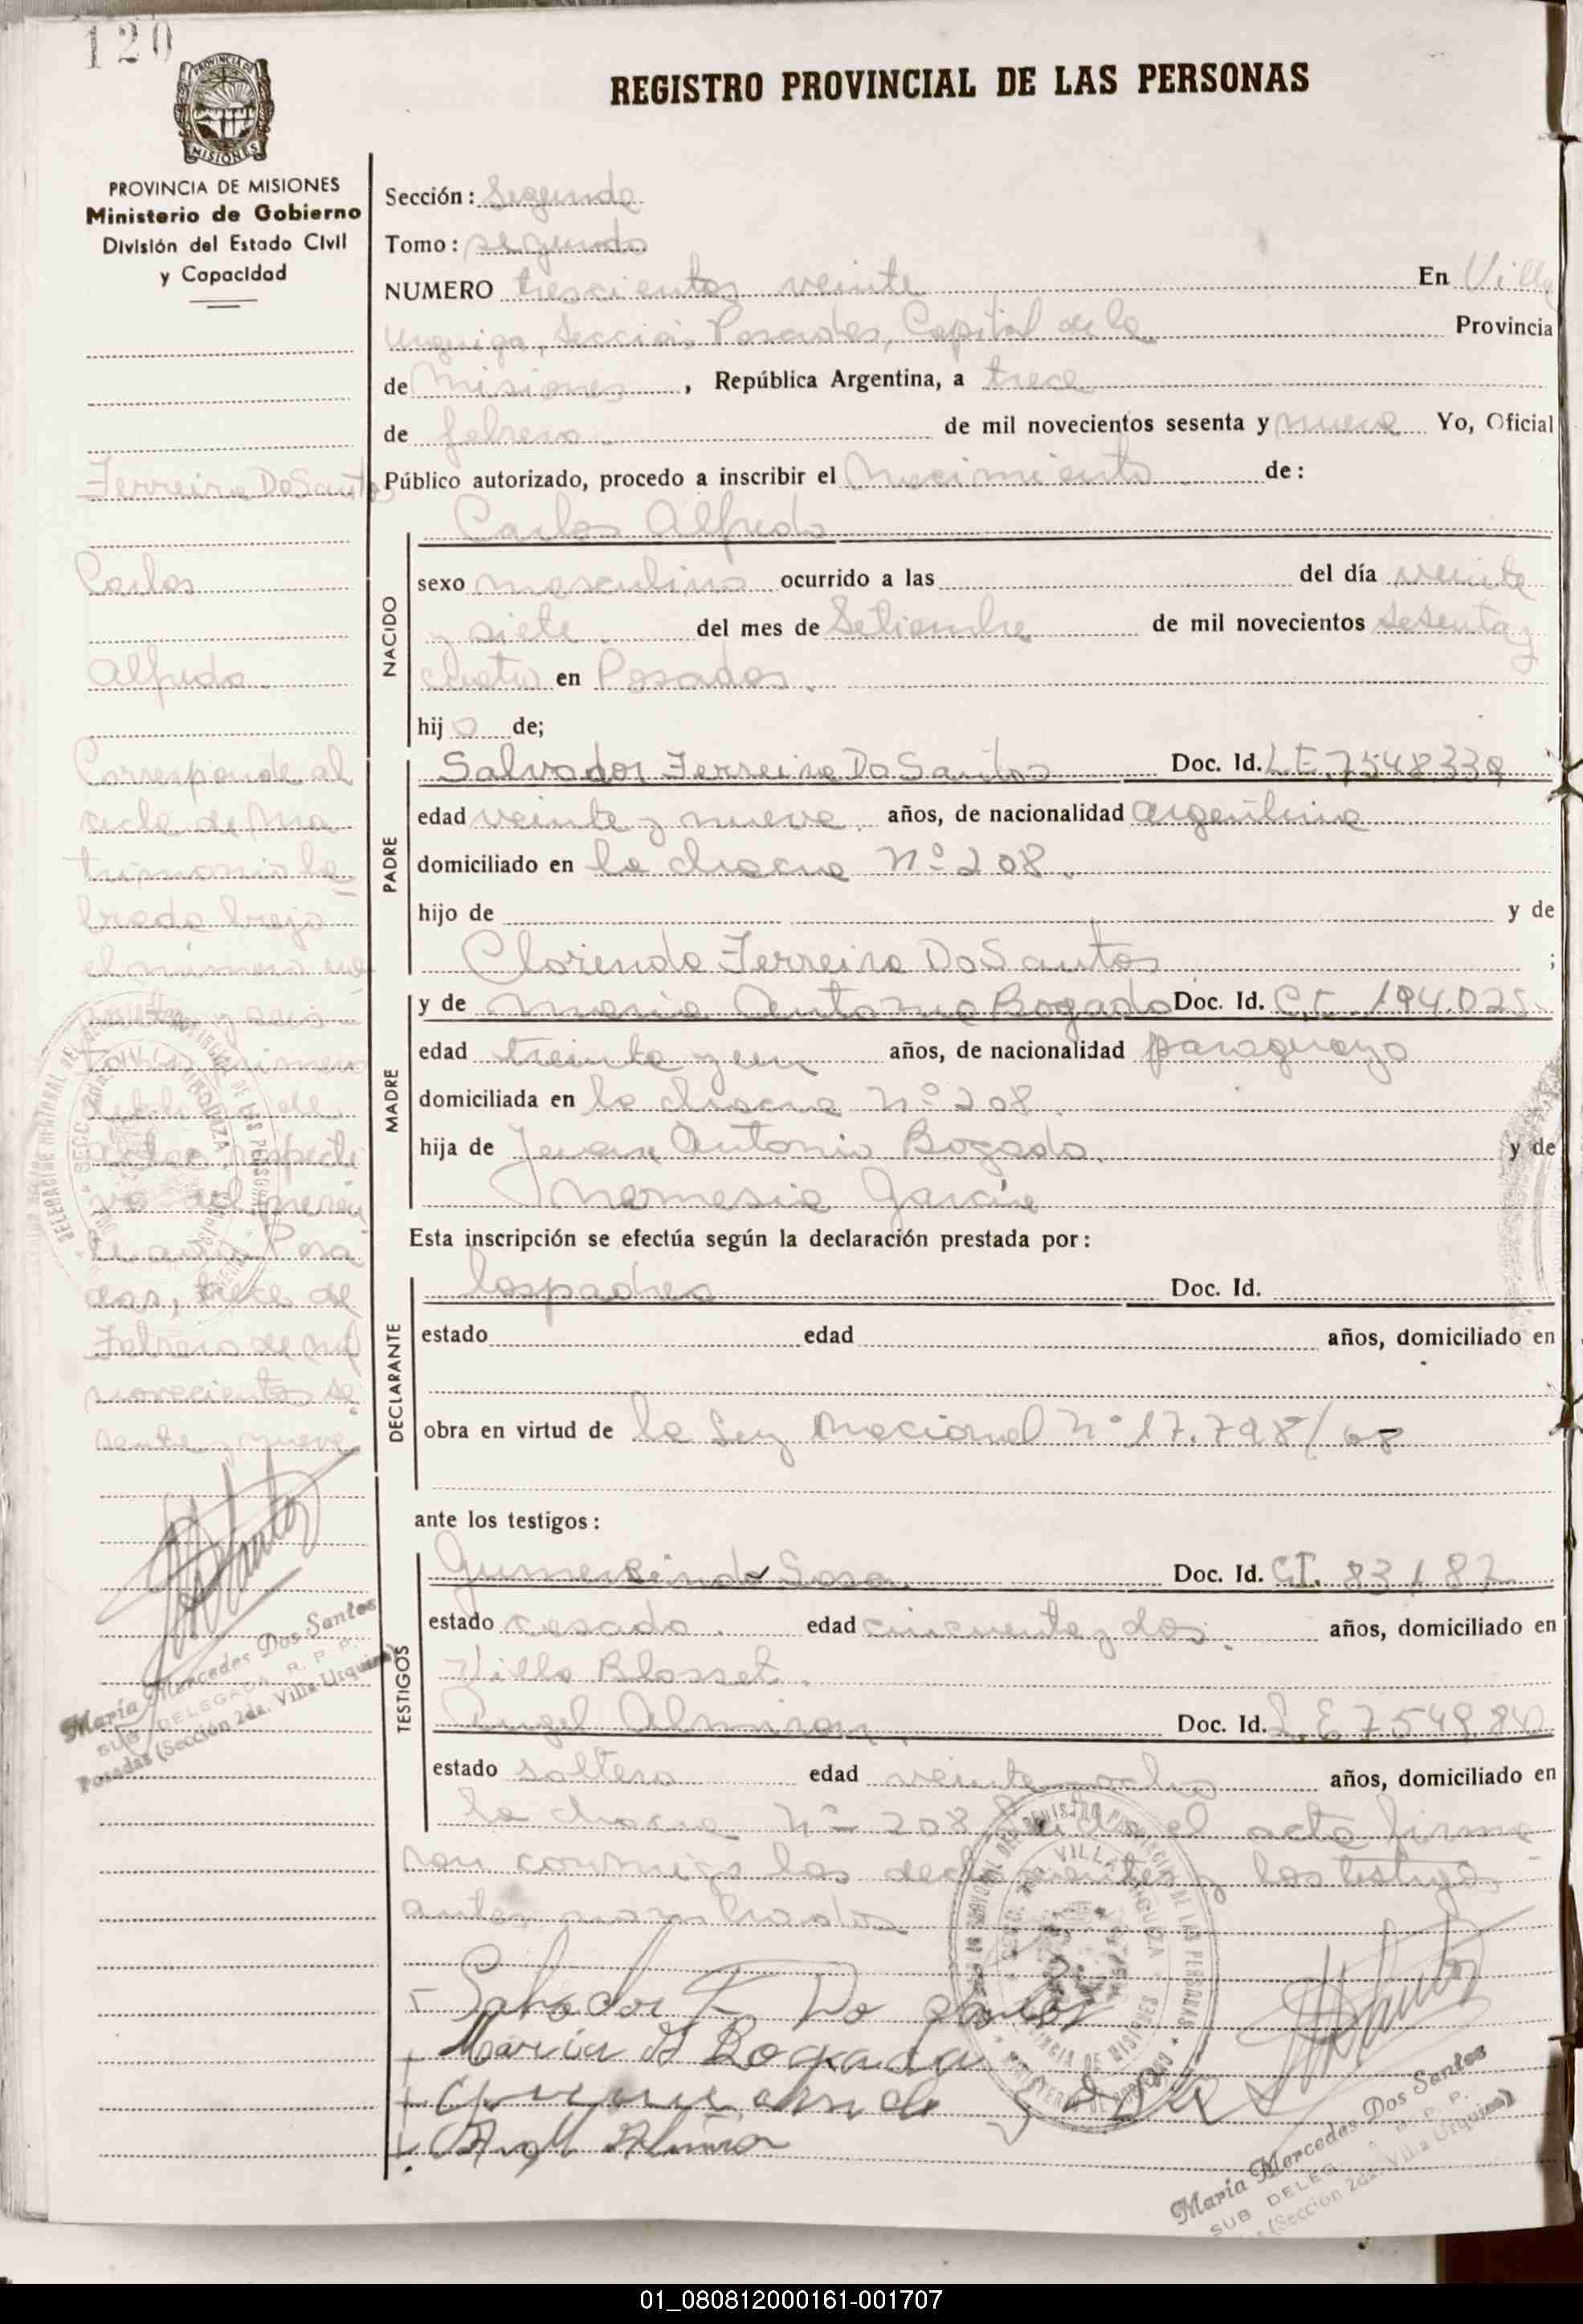 120
PROVINCIA DE MISIONES
MISIONES
PROVINCIA DE MISIONES
Ministerio de Gobierno
División del Estado Civil
y Capacidad
Ferreira Do Santos
Carlos
Alfredo.
Corresponde al
acta de Ma
trimonio la
brada bajo
el número
de
respecti
vo del presen
te año. Posa
das, trece de
Febrero de mil
novecientos se
senta y nueve
María Mercedes Dos Santos
SUB DELEGADA R. P. P.
Posadas (Sección 2da. Villa Urquiza)
REGISTRO PROVINCIAL DE LAS PERSONAS
Sección: Segunda
Tomo: segundo
NUMERO trescientos veinte En Villa
Urquiza, Sección Posadas, Capital de la Provincia
de Misiones, República Argentina, a trece
de febrero de mil novecientos sesenta y nueve Yo, Oficial
Público autorizado, procedo a inscribir el nacimiento de:
Carlos Alfredo
NACIDO
sexo masculino ocurrido a las del día veinte
y siete del mes de Setiembre de mil novecientos sesenta y
cuatro en Posadas.
hijo de;
PADRE
Salvador Ferreira Do Santos Doc. Id. L.E. 7548339
edad veinte y nueve años, de nacionalidad argentina
domiciliado en la chacra Nº 208.
hijo de y de
Clorinda Ferreira Do Santos ;
MADRE
y de Maria Antonia Bogado Doc. Id. C.I. 194.025
edad treinta y un años, de nacionalidad paraguaya
domiciliada en la chacra Nº 208.
hija de Juan Antonio Bogado y de
Nemesia Garcia
Esta inscripción se efectúa según la declaración prestada por:
DECLARANTE
los padres Doc. Id.
estado edad años, domiciliado en
obra en virtud de la Ley Nacional Nº 17.798/68
ante los testigos:
TESTIGOS
Gumercindo Sosa Doc. Id. C.I. 83187
estado casado. edad cincuenta y dos. años, domiciliado en
Villa Blosset.
Angel Almiron, Doc. Id. L.E. 7549.840
estado soltero edad veinte y ocho años, domiciliado en
la chacra Nº 208. Leida el acta firma
ron conmigo los declarantes y los testigos
antes nombrados
Salvador F. Do Santos
María A Bogado
Gumercindo Sosa
Angel Almiron
María Mercedes Dos Santos
SUB DELEG R. P. P.
(Sección 2da. Villa Urquiza)
01_080812000161-001707